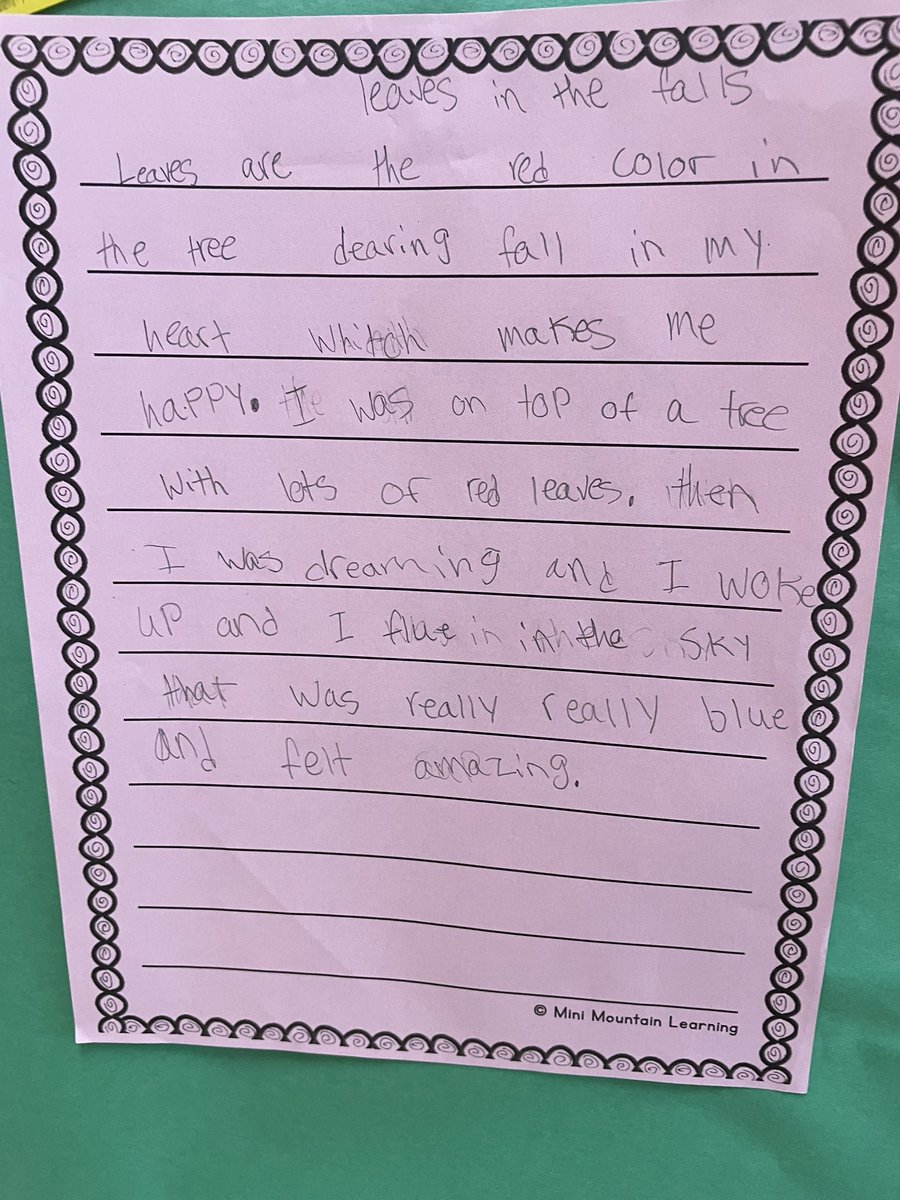 leaves in the falls
Leaves are the red color in
the tree dearing fall in my
heart makes me
happy. I was on top of a tree
with lots of red leaves. then
I was dreaming and I woke
up and I in the sky
that was really really blue
and felt amazing.
© Mini Mountain Learning